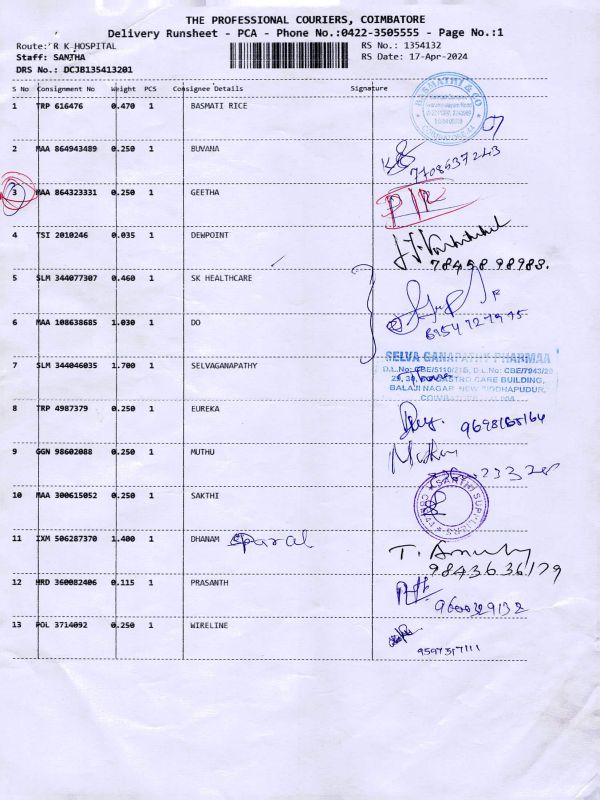 THE PROFESSIONAL COURIERS, COIMBATORE
Delivery Runsheet - PCA - Phone No.:0422-3505555 - Page No.:1
Route: R K HOSPITAL RS No.: 1354132
Staff: SANTHA RS Date: 17-Apr-2024
DRS No.: DCJB135413201
S No Consignment No Weight PCS Consignee Details Signature
1 TRP 616476 0.470 1 BASMATI RICE
2 MAA 864943489 0.250 1 BUVANA
7708537243
3 MAA 864323331 0.250 1 GEETHA
4 TSI 2010246 0.035 1 DEWPOINT
78458 98983.
5 SLM 344077307 0.460 1 SK HEALTHCARE
6 MAA 108638685 1.030 1 DO
7 SLM 344046035 1.700 1 SELVAGANAPATHY
SELVA GANAPATHI PHARMAA
BALAJI NAGAR, NEW SIDDHAPUDUR,
8 TRP 4987379 0.250 1 EUREKA
9 GGN 98602088 0.250 1 MUTHU
10 MAA 300615052 0.250 1 SAKTHI
SAKTHI SUPPLIERS
11 IXM 506287370 1.400 1 DHANAM
9843636179
12 HRD 360082406 0.115 1 PRASANTH
9600329132
13 POL 3714092 0.250 1 WIRELINE
9597357111